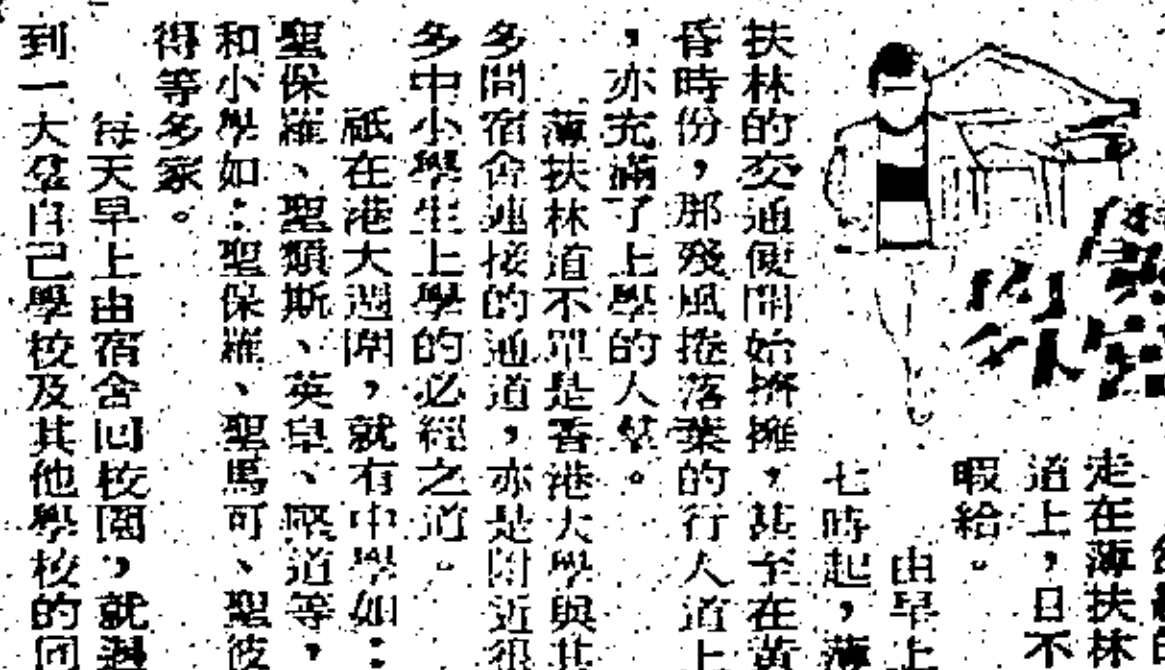 走在薄扶林
道上，日不
暇給。
由早上
七時起，薄
扶林的交通便開始擠擁，甚至在黃
昏時份，那殘風捲落葉的行人道上
，亦充滿了上學的人羣。
薄扶林道不單是香港大學與其
多間宿舍連接的通道，亦是附近很
多中小學生上學的必經之道。
祇在港大週圍，就有中學如：
聖保羅、聖類斯、英皇、眾道等，
和小學如：聖保羅、聖馬可、聖彼
得等多家。
每天早上由宿舍回校園，就遇
到一大羣自己學校及其他學校的同